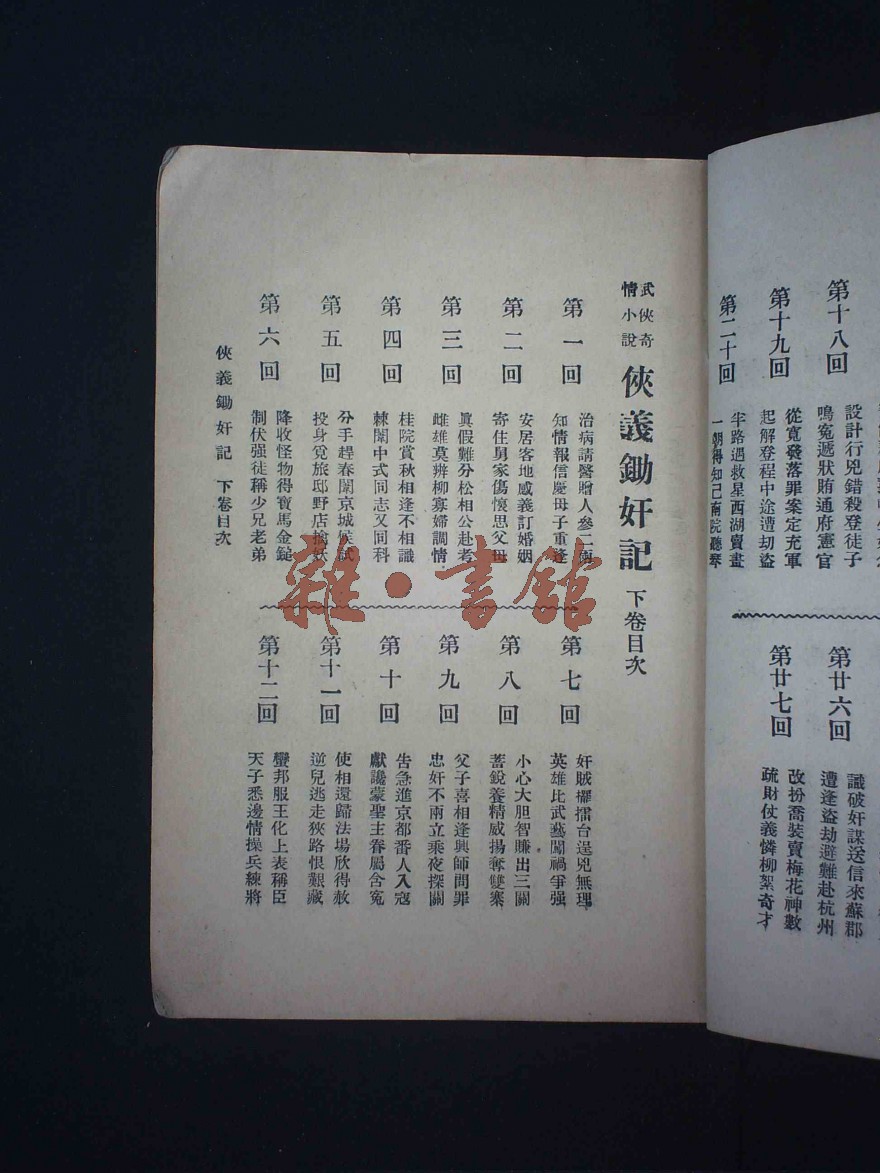 第十八回
設計行兇錯殺登徒子
鳴寃遞狀賄通府憲官
第十九回
從寬發落罪案定充軍
起解登程中途遭刧盜
第二十回
半路遇救星西湖賣畫
一朝得知己南院聽琴
第廿六回
識破奸謀送信來蘇郡
遭逢盜劫避難赴杭州
第廿七回
改扮喬裝賣梅花神數
疏財仗義憐柳絮奇才
武俠奇情小說
俠義鋤奸記 下卷目次
第一回
治病請醫贈人參二兩
知情報信慶母子重逢
第二回
安居客地感義訂婚姻
寄住舅家傷懷思父母
第三回
眞假難分松相公赴考
雌雄莫辨柳寡婦調情
第四回
桂院賞秋相逢不相識
棘闈中式同志又同科
第五回
分手趕春闈京城候試
投身覓旅邸野店擒妖
第六回
降收怪物得寶馬金鎚
制伏强徒稱少兄老弟
第七回
奸賊擺擂台逞兇無理
英雄比武藝闖禍爭强
第八回
小心大胆智賺出三關
蓄銳養精威揚奪雙寨
第九回
父子喜相逢興師問罪
忠奸不兩立乘夜探關
第十回
告急進京都番人入寇
獻讒蒙聖主眷屬含寃
第十一回
使相還歸法場欣得赦
逆兒逃走狹路恨艱藏
第十二回
蠻邦服王化上表稱臣
天子悉邊情操兵練將
俠義鋤奸記 下卷目次
雜·書館